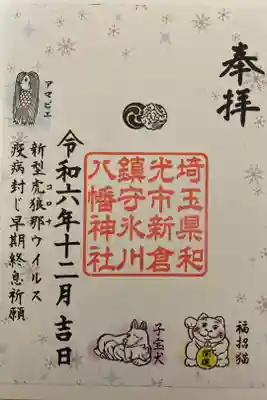 奉拝
埼玉県和
光市新倉
鎮守氷川
八幡神社
福招猫
開運
子宝犬
令和六年十二月吉日
アマビエ
新型虎狼那ウイルス
コロナ
疫病封じ早期終息祈願